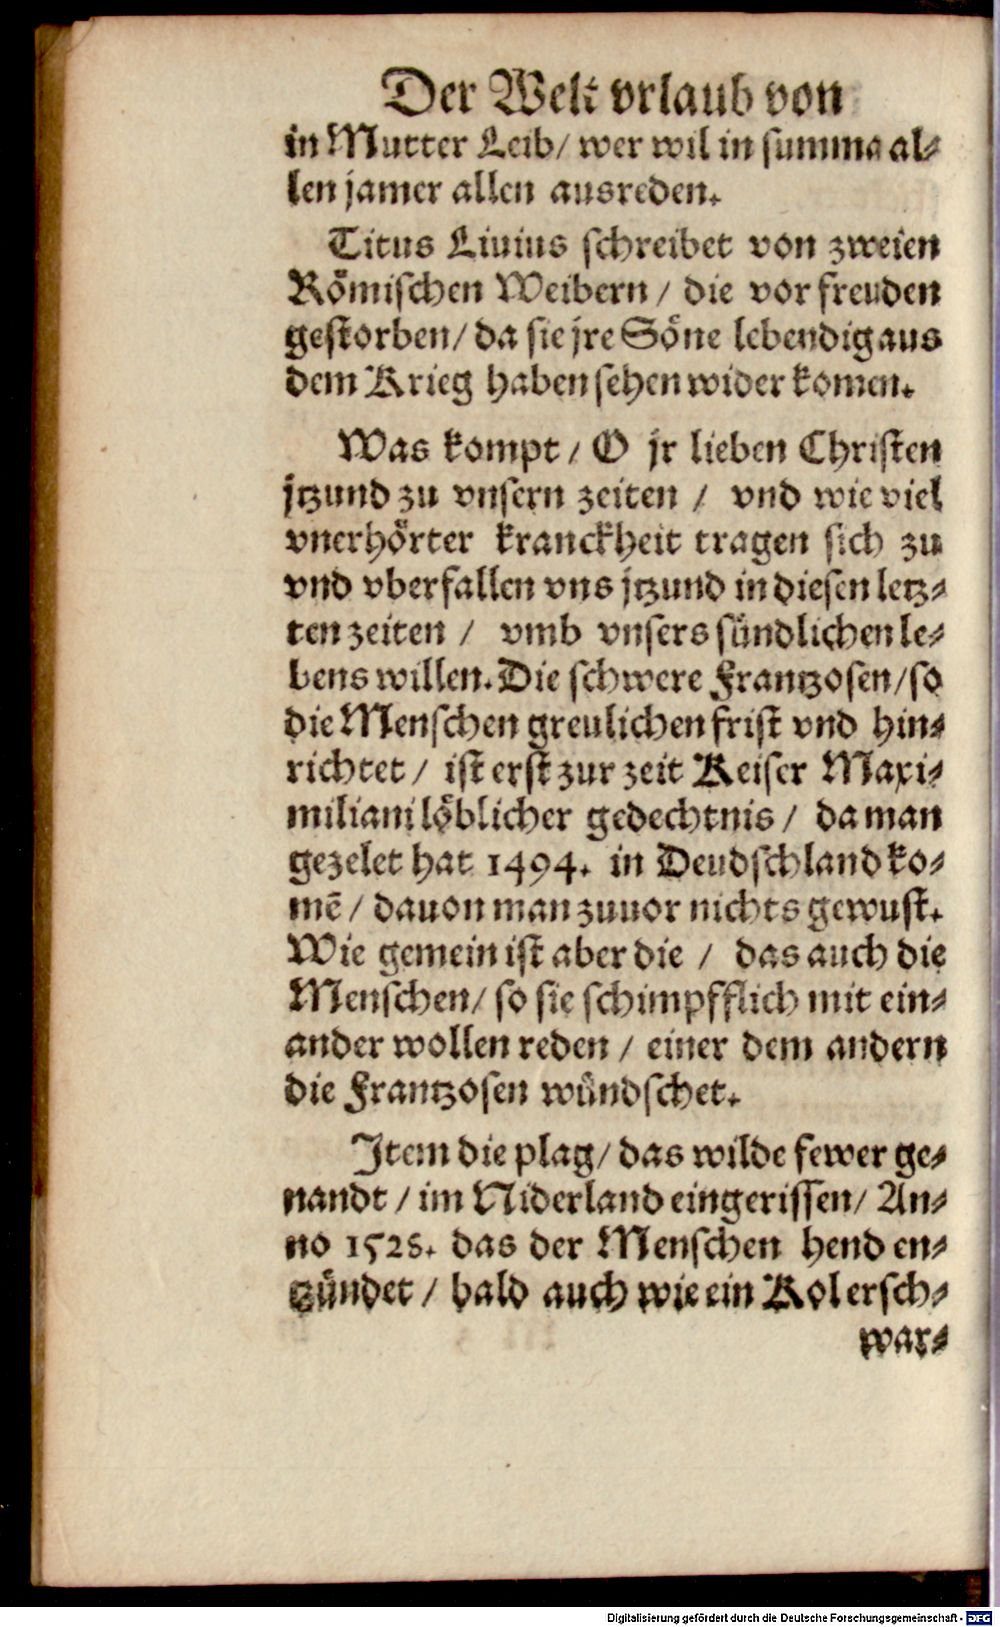 Der Welt vrlaub von
in Mutter Leib/ wer wil in summa al⸗
len jamer allen ausreden.
Titus Liuius schreibet von zweien
Römischen Weibern / die vor freuden
gestorben/ da sie jre Söne lebendig aus
dem Krieg haben sehen wider komen.
Was kompt / O jr lieben Christen
jtzund zu vnsern zeiten / vnd wie viel
vnerhörter kranckheit tragen sich zu
vnd vberfallen vns jtzund in diesen letz⸗
ten zeiten / vmb vnsers sündlichen le⸗
bens willen. Die schwere Frantzosen/ so
die Menschen greulichen frist vnd hin⸗
richtet / ist erst zur zeit Keiser Maxi⸗
miliani löblicher gedechtnis / da man
gezelet hat 1494. in Deudschland ko⸗
mē / dauon man zuuor nichts gewust.
Wie gemein ist aber die / das auch die
Menschen/ so sie schimpfflich mit ein⸗
ander wollen reden / einer dem andern
die Frantzosen wündschet.
Item die plag/ das wilde fewer ge⸗
nandt / im Niderland eingerissen/ An⸗
no 1528. das der Menschen hend en⸗
tzündet / bald auch wie ein Kol ersch⸗
war⸗
Digitalisierung gefördert durch die Deutsche Forschungsgemeinschaft - DFG